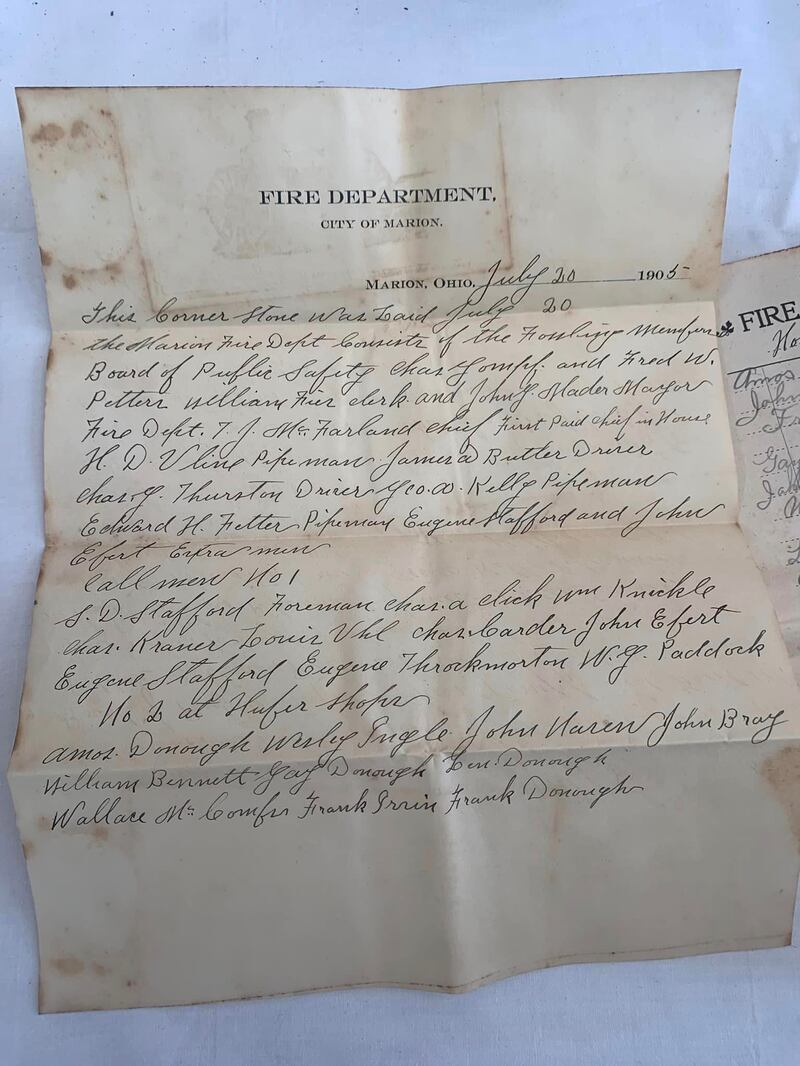 FIRE DEPARTMENT,
CITY OF MARION.
MARION, OHIO, July 20 1905
This Corner Stone Was Laid July 20
the Marion Fire Dept Consists of the Fowling Members
Board of Public Safety Chas Gompf. and Fred W.
Petters William Fies clerk. and John G. Mader Mayor
Fire Dept. T. J. Mc Farland chief First Paid chief in House
H. D. Vline Pipeman James a Butler Driver
chas. G. Thurston Driver Geo. a. Kelly Pipeman
Edward H. Fetter Pipeman Eugene Stafford and John
Efert Extra men
Call men No 1
S. D. Stafford Foreman chas. a click Wm Knickle
chas. Kraner Louis Uhl chas. Carder John Efert
Eugene Stafford Eugene Throckmorton W. G. Paddock
No 2 at Hufer shops
amos. Donough Wesley Engle John Haren John Bray
William Bennett Gay Donough Len. Donough
Wallace Mc Comfs Frank Irvin Frank Donough
FIRE
Amos
John